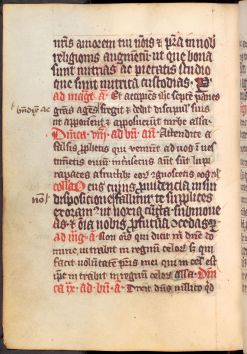 amorem tui nois & p̄sta in nob
religionis augmentū ut que bona
sunt nutrias ac pietatis studio
que sunt nutrita custodias. P
ad magt. a. Et accipiēs ihc septē panes
grās agēs fregit & dedit discipul suis
ut apponerēt & apposuerūt turbe. alla.
Dnica. viij. ad bn. an. Attendite a
falsis pphetis qui veniūt ad uos ī ues
timētis ouiū intrinsecus aūt sūt lupi
rapaces a fructib; eor cognoscetis eos
colla. Deus cuius p̄uidencia in sui
dispositione nō fallitur te supplices
exoram ut noxia cūcta submoue
as & oīa nobis p̄futura cōcedas. P
ad mg. a. Non oīs qui dicit m dne do
mine, intrabit in regnū celor s; qui
facit volūtatē pris mei qui in cel est
ipe intrabit in regnū celor alla. Dn
ca ix. ad bn. a. Dixit dns uillico